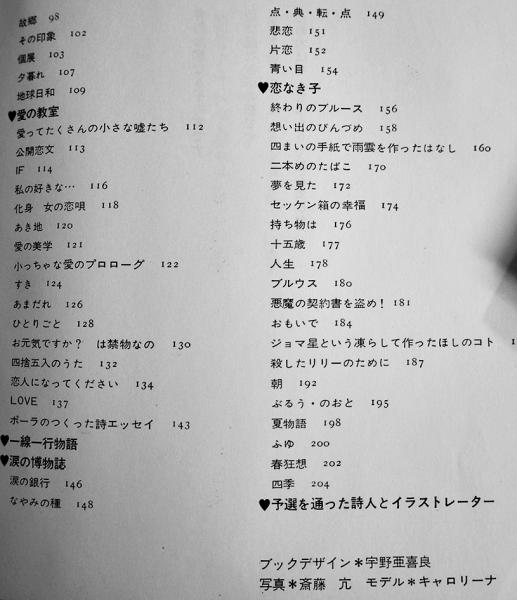 故郷 98
その印象 102
個展 103
夕暮れ 107
地球日和 109
♥愛の教室
愛ってたくさんの小さな嘘たち 112
公開恋文 113
IF 114
私の好きな… 116
化身 女の恋唄 118
あき地 120
愛の美学 121
小っちゃな愛のプロローグ 122
すき 124
あまだれ 126
ひとりごと 128
お元気ですか? は禁物なの 130
四捨五入のうた 132
恋人になってください 134
LOVE 137
ポーラのつくった詩エッセイ 143
♥一線一行物語
♥涙の博物誌
涙の銀行 146
なやみの種 148
点・典・転・点 149
悲恋 151
片恋 152
青い目 154
♥恋なき子
終わりのブルース 156
想い出のびんづめ 158
四まいの手紙で雨雲を作ったはなし 160
二本めのたばこ 170
夢を見た 172
セッケン箱の幸福 174
持ち物は 176
十五歳 177
人生 178
ブルウス 180
悪魔の契約書を盗め! 181
おもいで 184
ジョマ星という凍らして作ったほしのコト
殺したリリーのために 187
朝 192
ぶるう・のおと 195
夏物語 198
ふゆ 200
春狂想 202
四季 204
♥予選を通った詩人とイラストレーター
ブックデザイン＊宇野亜喜良
写真＊斎藤 亢 モデル＊キャロリーナ